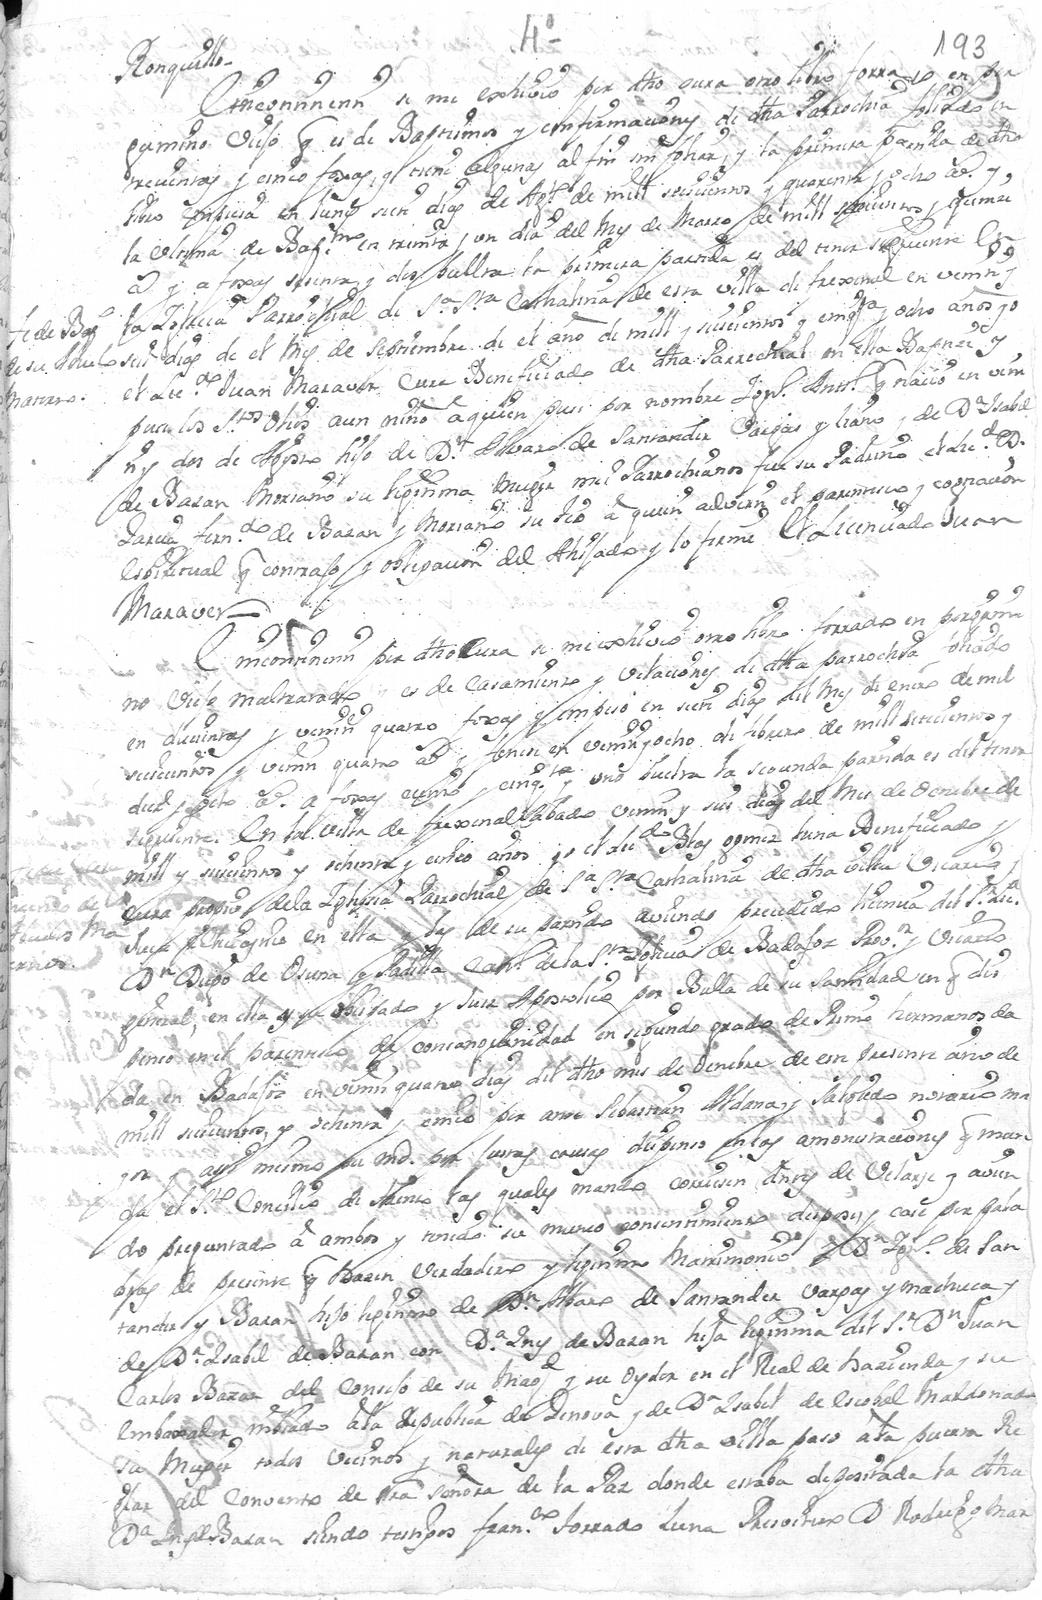 4º
193
Ronquillo
Encontinenti se me exhivio por dho cura otro libro forrado en per
gamino Viejo q es de Baptismos y confirmaciones de dha Parrochia foliado en
trecientas y cinco foxas, y tiene algunas al fin sin foliar, y la primera partida de dho
libro empiesa en lunes siete dias de Agto de mill seiscientos y quarenta y ocho aº. y
la ultima de Bapmo en treinta y un dia del mes de Marzo de mill setecientos y quinze
aº y a foxas sesenta y dos buelta la primera partida es del tenor siguiente En
fe de Bapmo
de su Abuelo
materno.
la Iglecia Parrochial de Sª Sta Cathalina de esta villa de frexenal en veinte y
seis dias de el Mes de Septiembre de el año de mill y seiscientos y cinqta y ocho años yo
el Licdo Juan Maraver Cura Beneficiado de dha Parrochial en ella Baptize y
puse los Stos Olios a un niño a quien puse por nombre Igno Anto q nacio en vein
te y dos de Agosto hijo de Dn Alvaro de Santander Vargas y liaño y de Dª Isabel
de Bazan Moriano su legitima Muger mis Parrochianos fue su Padrino el Licdo D.
Garcia ferndo de Bazan y Moriano su tio a quien adverti el parentesco y cognacion
espiritual q contrajo y obligacion del Ahijado y lo firmé El Licenciado Juan
Maraver
Encontinenti por dho Cura se me exhivio otro libro forrado en pergami
no Viejo maltratado y es de Casamientos y Velaciones de dha parrochia foliado
en ducientas y veinte y quatro foxas y empeso en siete dias del Mes de enero de mil
seiscientos y veinte y quatro aº y fenese en veinte y ocho de febrero de mill setecientos y
diez y ocho aº. a foxas ciento y cinqta y uno buelta la segunda partida es del tenor
siguiente. En la Villa de frexenal Sabado veinte y seis dias del Mes de Octubre de
mill y seiscientos y ochenta y cinco años yo el Licdo Blas gomez luna Beneficiado y
cura propio de la Iglesia Parrochial de Sª Sta Cathalina de dha villa Vicario y
Juez Ecleciastico en ella y las de su partido aviendo precedido licencia del Sr Lic.
Dn Diego de Osuna y Padilla Cano de la Sta Iglecia de Badajoz Provr y Vicario
general en ella y su obispado y Juez Apostolico por Bulla de su Santidad en q dis
penso en el parentesco de consanguinidad en segundo grado de Primos hermanos da
da en Badajoz en veinte y quatro dias del dho mes de Octubre de este presente año de
mill seiscientos y ochenta y cinco por ante Sebastian Aldana y Salgado notario ma
yor y asi mismo su md. por justas causas dispenso en las amonestaciones q man
da el Sto Concilio de Trento las quales mando corriesen antes de Velarse y avien
do preguntado a ambos y tenido su mutuo consentimiento despose y case por pala
bras de presente q hazen Verdadero y legitimo Matrimonio a Dn Igno de San
tander y Bazan hijo legitimo de Dn Alvaro de Santander Vargas y machuca y
de Dª Isabel de Bazan con Dª Ines de Bazan hija legitima del Sr Dn Juan
Carlos Bazan del Consejo de su Magd y su Oydor en el Real de hazienda y su
embaxador imbiado a la Republica de Genova y de Dª Isabel de Escobel Maldonado
su Muger todos Vecinos y naturales de esta dha villa paso a la puerta Re
glar del Convento de Nra Señora de la Paz donde estaba depositada la dha
Dª Ines Bazan siendo testigos franco forrado Luna Presvitero D Rodrigo Mar